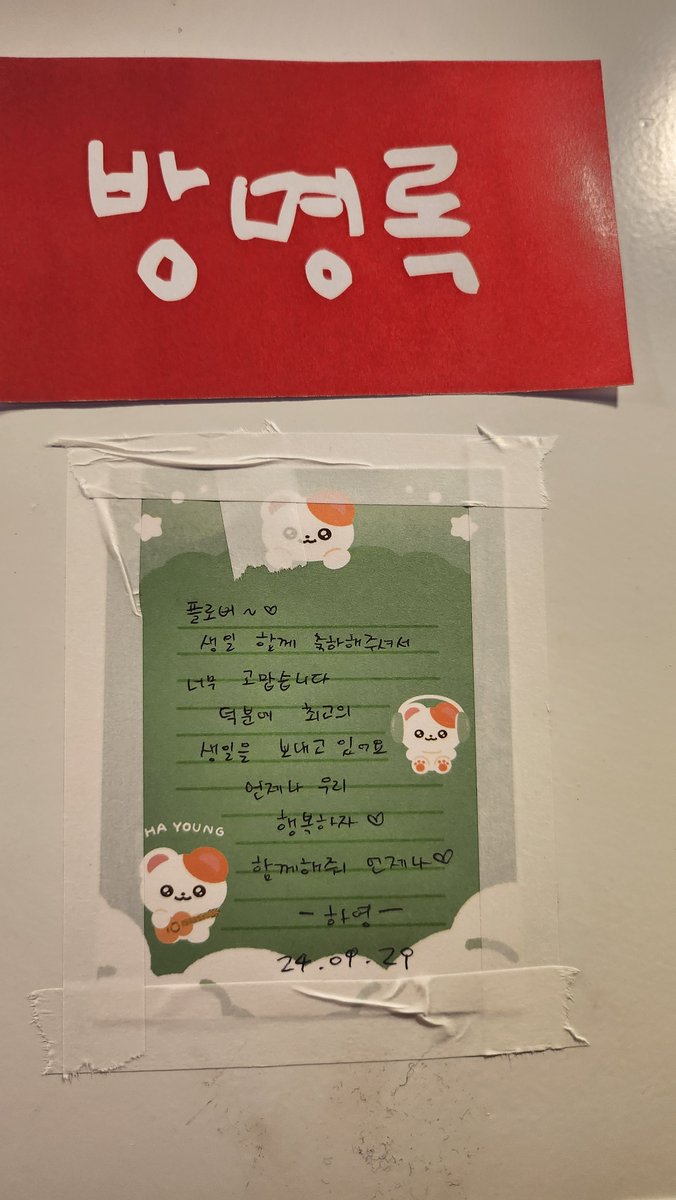 방명록
플로버~♡
생일 함께 축하해주셔서
너무 고맙습니다
덕분에 최고의
생일을 보내고 있어요
언제나 우리
행복하자 ♡
HA YOUNG
함께해줘 언제나♡
-하영-
24.09.29